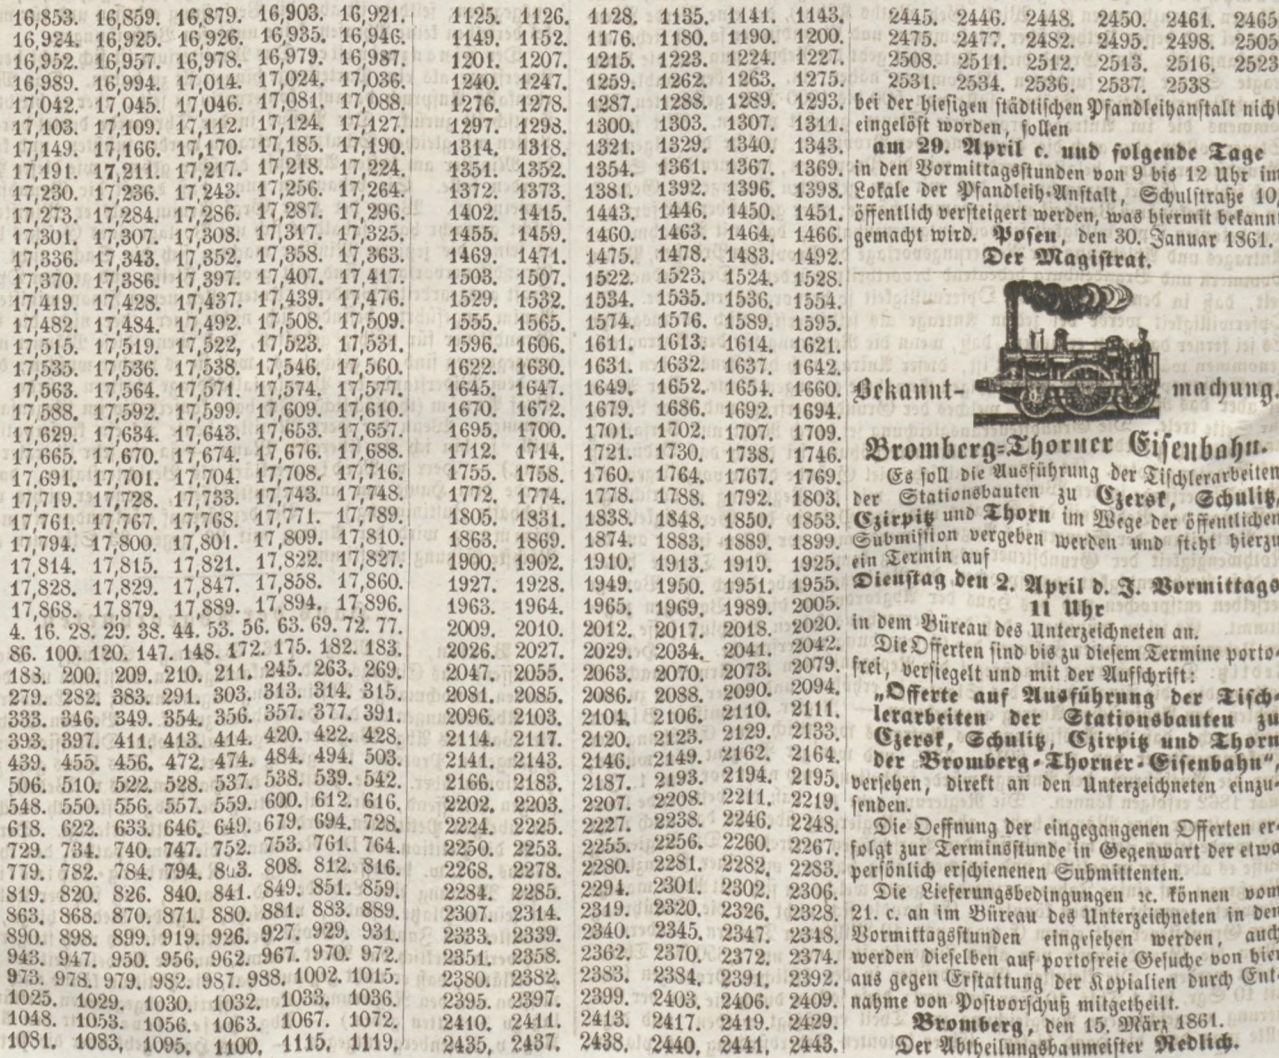 16,853. 16,859. 16,879. 16,903. 16,921.
16,924. 16,925. 16,926. 16,935. 16,946.
16,952. 16,957. 16,978. 16,979. 16,987.
16,989. 16,994. 17,014. 17,024. 17,036.
17,042. 17,045. 17,046. 17,081. 17,088.
17,103. 17,109. 17,112. 17,124. 17,127.
17,149. 17,166. 17,170. 17,185. 17,190.
17,191. 17,211. 17,217. 17,218. 17,224.
17,230. 17,236. 17,243. 17,256. 17,264.
17,273. 17,284. 17,286. 17,287. 17,296.
17,301. 17,307. 17,308. 17,317. 17,325.
17,336. 17,343. 17,352. 17,358. 17,363.
17,370. 17,386. 17,397. 17,407. 17,417.
17,419. 17,428. 17,437. 17,439. 17,476.
17,482. 17,484. 17,492. 17,508. 17,509.
17,515. 17,519. 17,522, 17,523. 17,531.
17,535. 17,536. 17,538. 17,546. 17,560.
17,563. 17,564. 17,571. 17,574. 17,577.
17,588. 17,592. 17,599. 17,609. 17,610.
17,629. 17,634. 17,643. 17,653. 17,657.
17,665. 17,670. 17,674. 17,676. 17,688.
17,691. 17,701. 17,704. 17,708. 17,716.
17,719. 17,728. 17,733. 17,743. 17,748.
17,761. 17,767. 17,768. 17,771. 17,789.
17,794. 17,800. 17,801. 17,809. 17,810.
17,814. 17,815. 17,821. 17,822. 17,827.
17,828. 17,829. 17,847. 17,858. 17,860.
17,868. 17,879. 17,889. 17,894. 17,896.
4. 16. 28. 29. 38. 44. 53. 56. 63. 69. 72. 77.
86. 100. 120. 147. 148. 172. 175. 182. 183.
188. 200. 209. 210. 211. 245. 263. 269.
279. 282. 383. 291. 303. 313. 314. 315.
333. 346. 349. 354. 356. 357. 377. 391.
393. 397. 411. 413. 414. 420. 422. 428.
439. 455. 456. 472. 474. 484. 494. 503.
506. 510. 522. 528. 537. 538. 539. 542.
548. 550. 556. 557. 559. 600. 612. 616.
618. 622. 633. 646. 649. 679. 694. 728.
729. 734. 740. 747. 752. 753. 761. 764.
779. 782. 784. 794. 803. 808. 812. 816.
819. 820. 826. 840. 841. 849. 851. 859.
863. 868. 870. 871. 880. 881. 883. 889.
890. 898. 899. 919. 926. 927. 929. 931.
943. 947. 950. 956. 962. 967. 970. 972.
973. 978. 979. 982. 987. 988. 1002. 1015.
1025. 1029. 1030. 1032. 1033. 1036.
1048. 1053. 1056. 1063. 1067. 1072.
1081. 1083. 1095. 1100. 1115. 1119.
1125. 1126. 1128. 1135. 1141. 1143.
1149. 1152. 1176. 1180. 1190. 1200.
1201. 1207. 1215. 1223. 1224. 1227.
1240. 1247. 1259. 1262. 1263. 1275.
1276. 1278. 1287. 1288. 1289. 1293.
1297. 1298. 1300. 1303. 1307. 1311.
1314. 1318. 1321. 1329. 1340. 1343.
1351. 1352. 1354. 1361. 1367. 1369.
1372. 1373. 1381. 1392. 1396. 1398.
1402. 1415. 1443. 1446. 1450. 1451.
1455. 1459. 1460. 1463. 1464. 1466.
1469. 1471. 1475. 1478. 1483. 1492.
1503. 1507. 1522. 1523. 1524. 1528.
1529. 1532. 1534. 1535. 1536. 1554.
1555. 1565. 1574. 1576. 1589. 1595.
1596. 1606. 1611. 1613. 1614. 1621.
1622. 1630. 1631. 1632. 1637. 1642.
1645. 1647. 1649. 1652. 1654. 1660.
1670. 1672. 1679. 1686. 1692. 1694.
1695. 1700. 1701. 1702. 1707. 1709.
1712. 1714. 1721. 1730. 1738. 1746.
1755. 1758. 1760. 1764. 1767. 1769.
1772. 1774. 1778. 1788. 1792. 1803.
1805. 1831. 1838. 1848. 1850. 1853.
1863. 1869. 1874. 1883. 1889. 1899.
1900. 1902. 1910. 1913. 1919. 1925.
1927. 1928. 1949. 1950. 1951. 1955.
1963. 1964. 1965. 1969. 1989. 2005.
2009. 2010. 2012. 2017. 2018. 2020.
2026. 2027. 2029. 2034. 2041. 2042.
2047. 2055. 2063. 2070. 2073. 2079.
2081. 2085. 2086. 2088. 2090. 2094.
2096. 2103. 2104. 2106. 2110. 2111.
2114. 2117. 2120. 2123. 2129. 2133.
2141. 2143. 2146. 2149. 2162. 2164.
2166. 2183. 2187. 2193. 2194. 2195.
2202. 2203. 2207. 2208. 2211. 2219.
2224. 2225. 2227. 2238. 2246. 2248.
2250. 2253. 2255. 2256. 2260. 2267.
2268. 2278. 2280. 2281. 2282. 2283.
2284. 2285. 2294. 2301. 2302. 2306.
2307. 2314. 2319. 2320. 2326. 2328.
2333. 2339. 2340. 2345. 2347. 2348.
2351. 2358. 2362. 2370. 2372. 2374.
2380. 2382. 2383. 2384. 2391. 2392.
2395. 2397. 2399. 2403. 2406. 2409.
2410. 2411. 2413. 2417. 2419. 2429.
2435. 2437. 2438. 2440. 2441. 2443.
2445. 2446. 2448. 2450. 2461. 2465
2475. 2477. 2482. 2495. 2498. 2505
2508. 2511. 2512. 2513. 2516. 2523
2531. 2534. 2536. 2537. 2538
bei der hiesigen städtischen Pfandleihanstalt nicht
eingelöst worden, sollen
am 29. April c. und folgende Tage
in den Vormittagsstunden von 9 bis 12 Uhr im
Lokale der Pfandleih-Anstalt, Schulstraße 10,
öffentlich versteigert werden, was hiermit bekannt
gemacht wird. Posen, den 30. Januar 1861.
Der Magistrat.
Bekannt- machung.
Bromberg-Thorner Eisenbahn.
Es soll die Ausführung der Tischlerarbeiten
der Stationsbauten zu Czersk, Schulitz,
Czirpitz und Thorn im Wege der öffentlichen
Submission vergeben werden und steht hierzu
ein Termin auf
Dienstag den 2. April d. J. Vormittags
11 Uhr
in dem Büreau des Unterzeichneten an.
Die Offerten sind bis zu diesem Termine porto-
frei, versiegelt und mit der Aufschrift:
„Offerte auf Ausführung der Tisch-
lerarbeiten der Stationsbauten zu
Czersk, Schulitz, Czirpitz und Thorn
der Bromberg-Thorner-Eisenbahn“,
versehen, direkt an den Unterzeichneten einzu-
senden.
Die Oeffnung der eingegangenen Offerten er-
folgt zur Terminsstunde in Gegenwart der etwa
persönlich erschienenen Submittenten.
Die Lieferungsbedingungen ꝛc. können vom
21. c. an im Büreau des Unterzeichneten in den
Vormittagsstunden eingesehen werden, auch
werden dieselben auf portofreie Gesuche von hier
aus gegen Erstattung der Kopialien durch Ent-
nahme von Postvorschuß mitgetheilt.
Bromberg, den 15. März 1861.
Der Abtheilungsbaumeister Redlich.